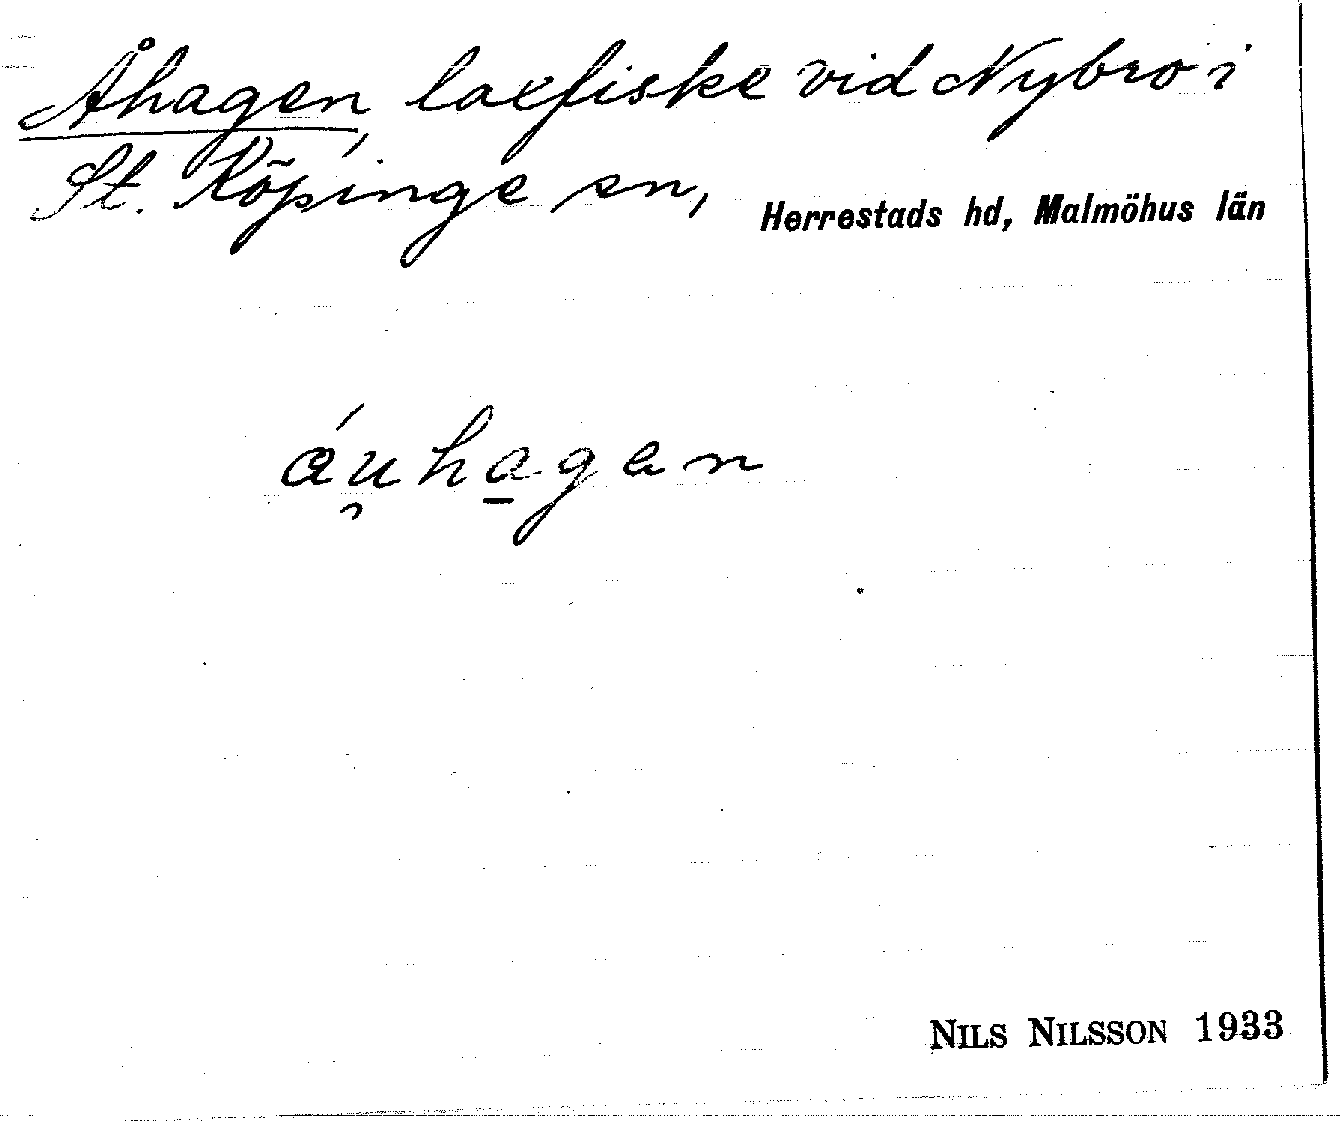 Åhagen, laxfiske vid Nybro i
St. Köpinge sn, Herrestads hd, Malmöhus län
áu̯ha̱gen
NILS NILSSON 1933